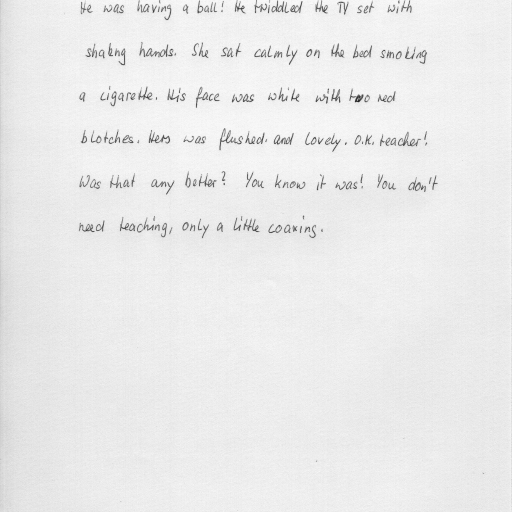 He was having a ball! He twiddled the TV set with
shaking hands. She sat calmly on the bed smoking
a cigarette. His face was white with two red
blotches. Hers was flushed and lovely. O.K. teacher!
Was that any better? You know it was! You don't
need teaching, only a little coaxing.